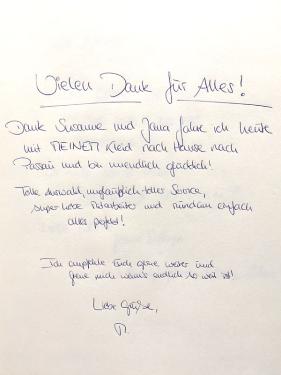 Vielen Dank für Alles!
Dank Susanne und Jana fahre ich heute
mit MEINEM Kleid nach Hause nach
Passau und bin unendlich glücklich!
Tolle Auswahl, unglaublich toller Service,
super liebe Mitarbeiter und rundum einfach
alles perfekt!
Ich empfehle Euch gerne weiter und
freue mich wenn's endlich so weit ist!
Liebe Grüße,